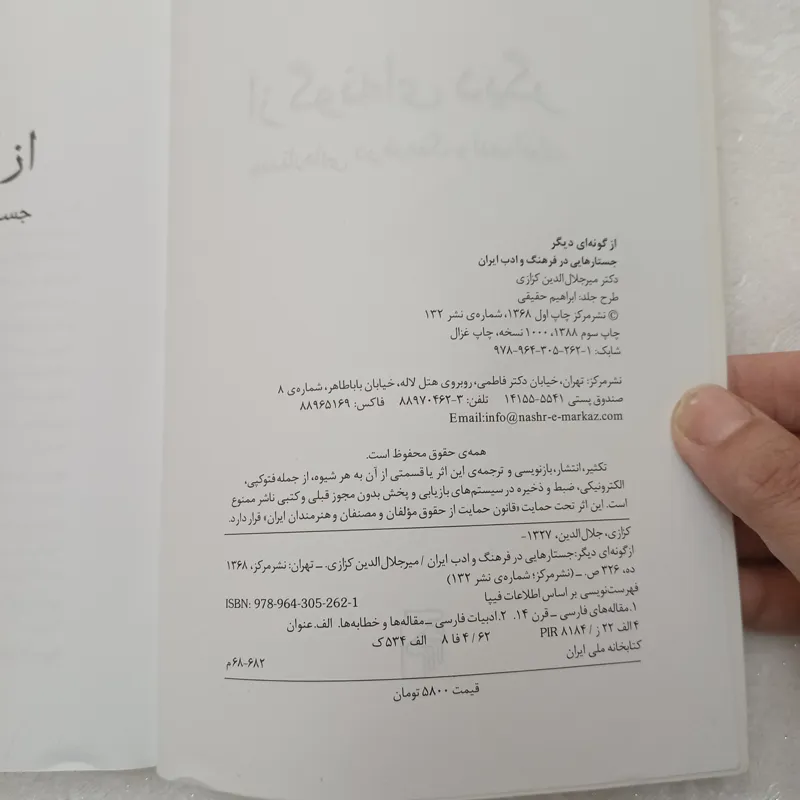 از
جستا
از گونه‌ای دیگر
جستارهایی در فرهنگ و ادب ایران
دکتر میرجلال‌الدین کزازی
طرح جلد: ابراهیم حقیقی
© نشرمرکز چاپ اول ۱۳۶۸، شماره‌ی نشر ۱۳۲
چاپ سوم ۱۳۸۸، ۱۰۰۰ نسخه، چاپ غزال
شابک: ۱-۲۶۲-۳۰۵-۹۶۴-۹۷۸
نشرمرکز: تهران، خیابان دکتر فاطمی، روبروی هتل لاله، خیابان باباطاهر، شماره‌ی ۸
صندوق پستی ۵۵۴۱-۱۴۱۵۵ تلفن: ۳-۸۸۹۷۰۴۶۲ فاکس: ۸۸۹۶۵۱۶۹
Email:info@nashr-e-markaz.com
همه‌ی حقوق محفوظ است.
تکثیر، انتشار، بازنویسی و ترجمه‌ی این اثر یا قسمتی از آن به هر شیوه، از جمله فتوکپی،
الکترونیکی، ضبط و ذخیره در سیستم‌های بازیابی و پخش بدون مجوز قبلی و کتبی ناشر ممنوع
است. این اثر تحت حمایت «قانون حمایت از حقوق مؤلفان و مصنفان و هنرمندان ایران» قرار دارد.
کزازی، جلال‌الدین، ۱۳۲۷-
ازگونه‌ای دیگر: جستارهایی در فرهنگ و ادب ایران / میرجلال‌الدین کزازی. ـ تهران: نشرمرکز، ۱۳۶۸
ده، ۳۲۶ ص. ـ (نشرمرکز؛ شماره‌ی نشر ۱۳۲)
فهرست‌نویسی بر اساس اطلاعات فیپا ISBN: 978-964-305-262-1
۱. مقاله‌های فارسی ـ قرن ۱۴. ۲. ادبیات فارسی ـ مقاله‌ها و خطابه‌ها. الف. عنوان
۴ الف ۲۲ ز / PIR ۸۱۸۴ ۶۲ / ۴ فا ۸ الف ۵۳۴ ک
کتابخانه ملی ایران ۶۸۲-۶۸م
قیمت ۵۸۰۰ تومان